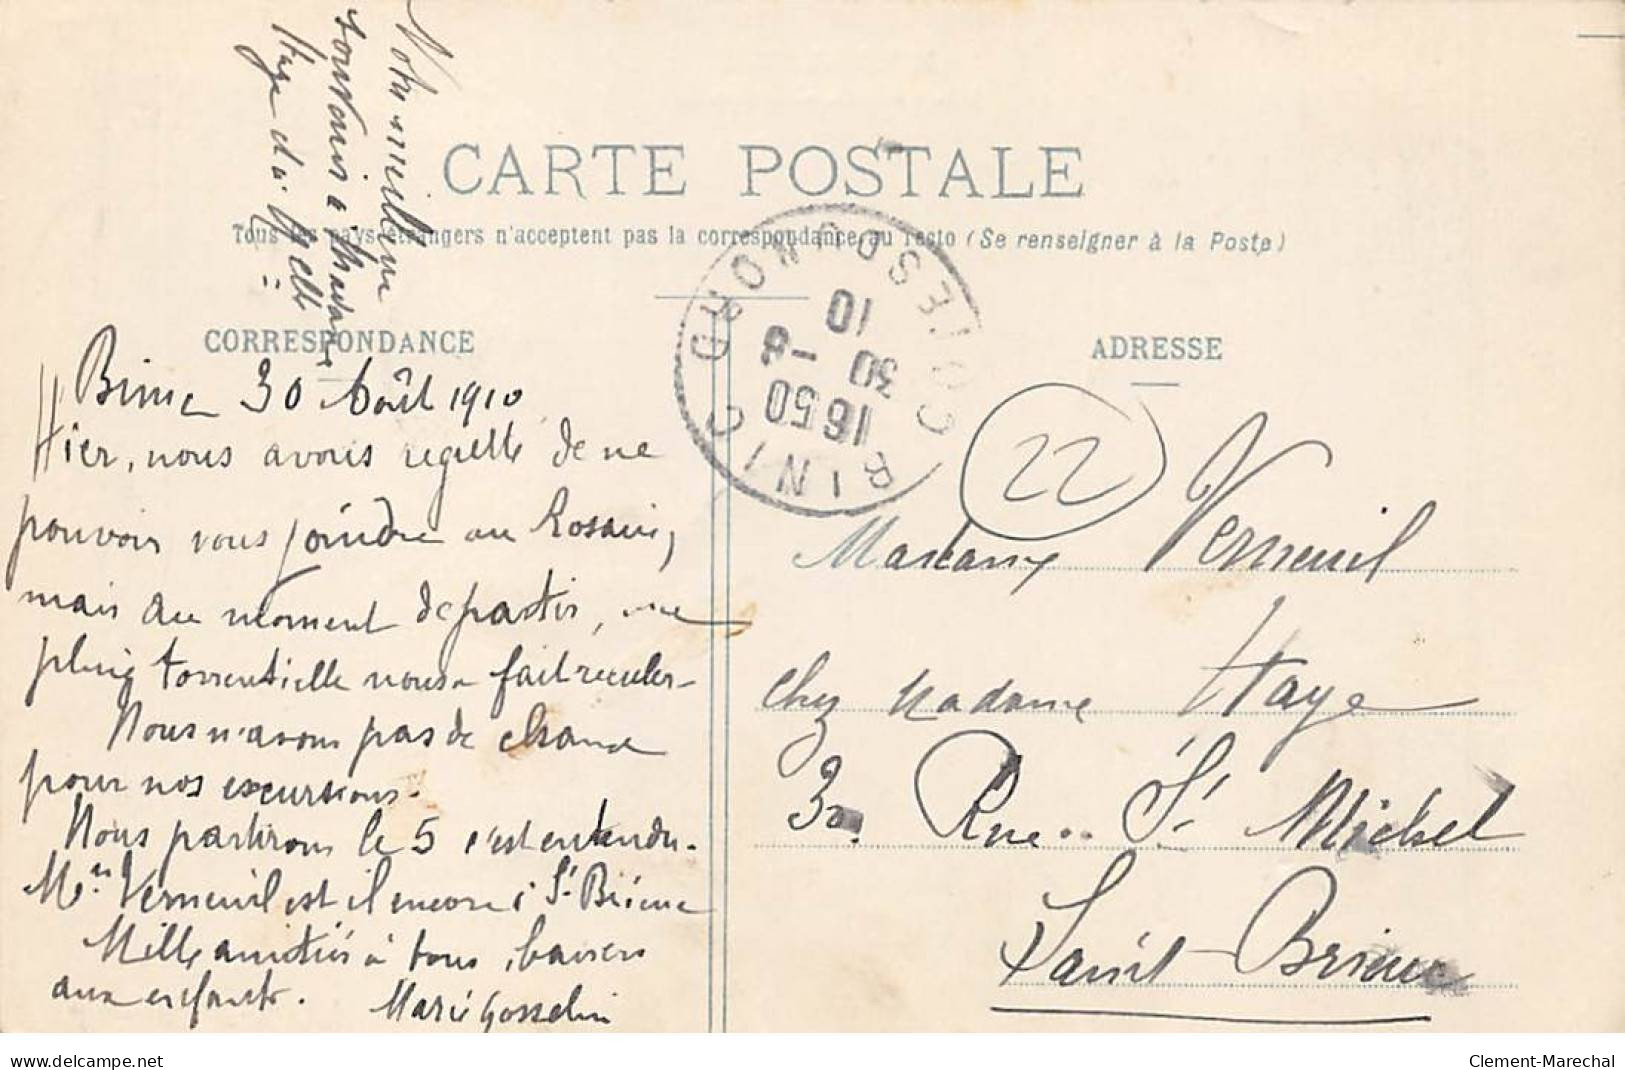 Votre meilleur
souvenir à Madame
Haye et à Melle
CARTE POSTALE
Tous les pays étrangers n'acceptent pas la correspondance au recto (Se renseigner à la Poste)
CORRESPONDANCE
Binic 30 Août 1910
Hier, nous avons regretté de ne
pouvoir vous joindre au Rosaire,
mais au moment de partir, une
pluie torrentielle nous a fait reculer.
Nous n'avons pas de chance
pour nos excursions.
Nous partirons le 5 c'est entendu.
Mr Verneuil est il encore à St Brieuc
Mille amitiés à tous, baisers
aux enfants.
Marie Gosselin
BINIC CÔTES DU NORD
16 50
30 -8
10
ADRESSE
22
Madame Verneuil
chez Madame Haye
30. Rue St Michel
Saint-Brieuc
www.delcampe.net
Clement-Marechal